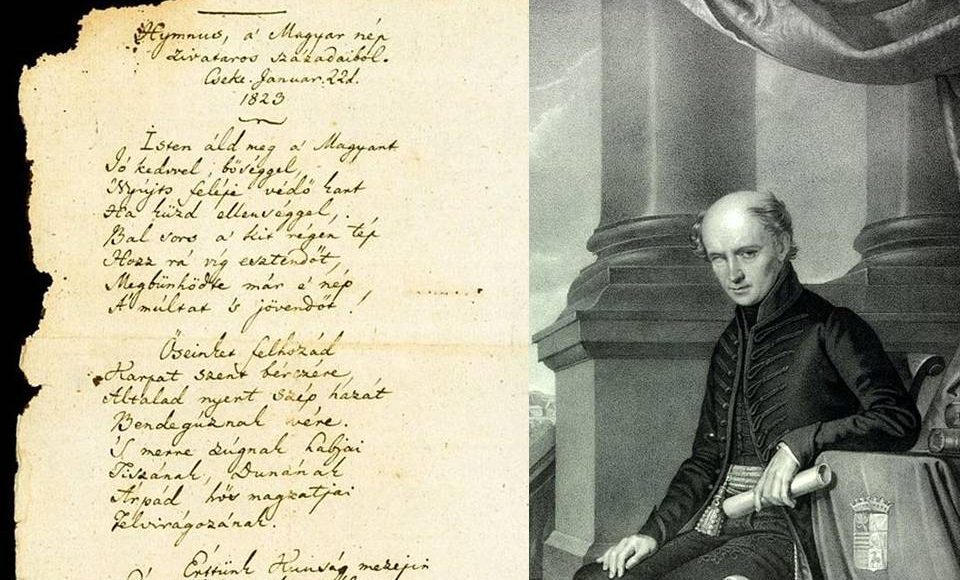 Hymnus, a' Magyar nép
zivataros századaiból.
Cseke. Januar. 22d.
1823
Isten áld meg a' Magyart
Jó kedvvel, bőséggel,
Nyújts feléje védő kart
Ha küzd ellenséggel,
Bal sors a' kit régen tép
Hozz rá víg esztendőt,
Megbűnhődte már e' nép
A' múltat 's jövendőt!
Őseinket felhozád
Kárpát szent bérczére,
Általad nyert szép hazát
Bendegúznak vére.
'S merre zúgnak habjai
Tiszának, Dunának
Árpád hős magzatjai
Felvirágozának.
Értünk Kunság mezején